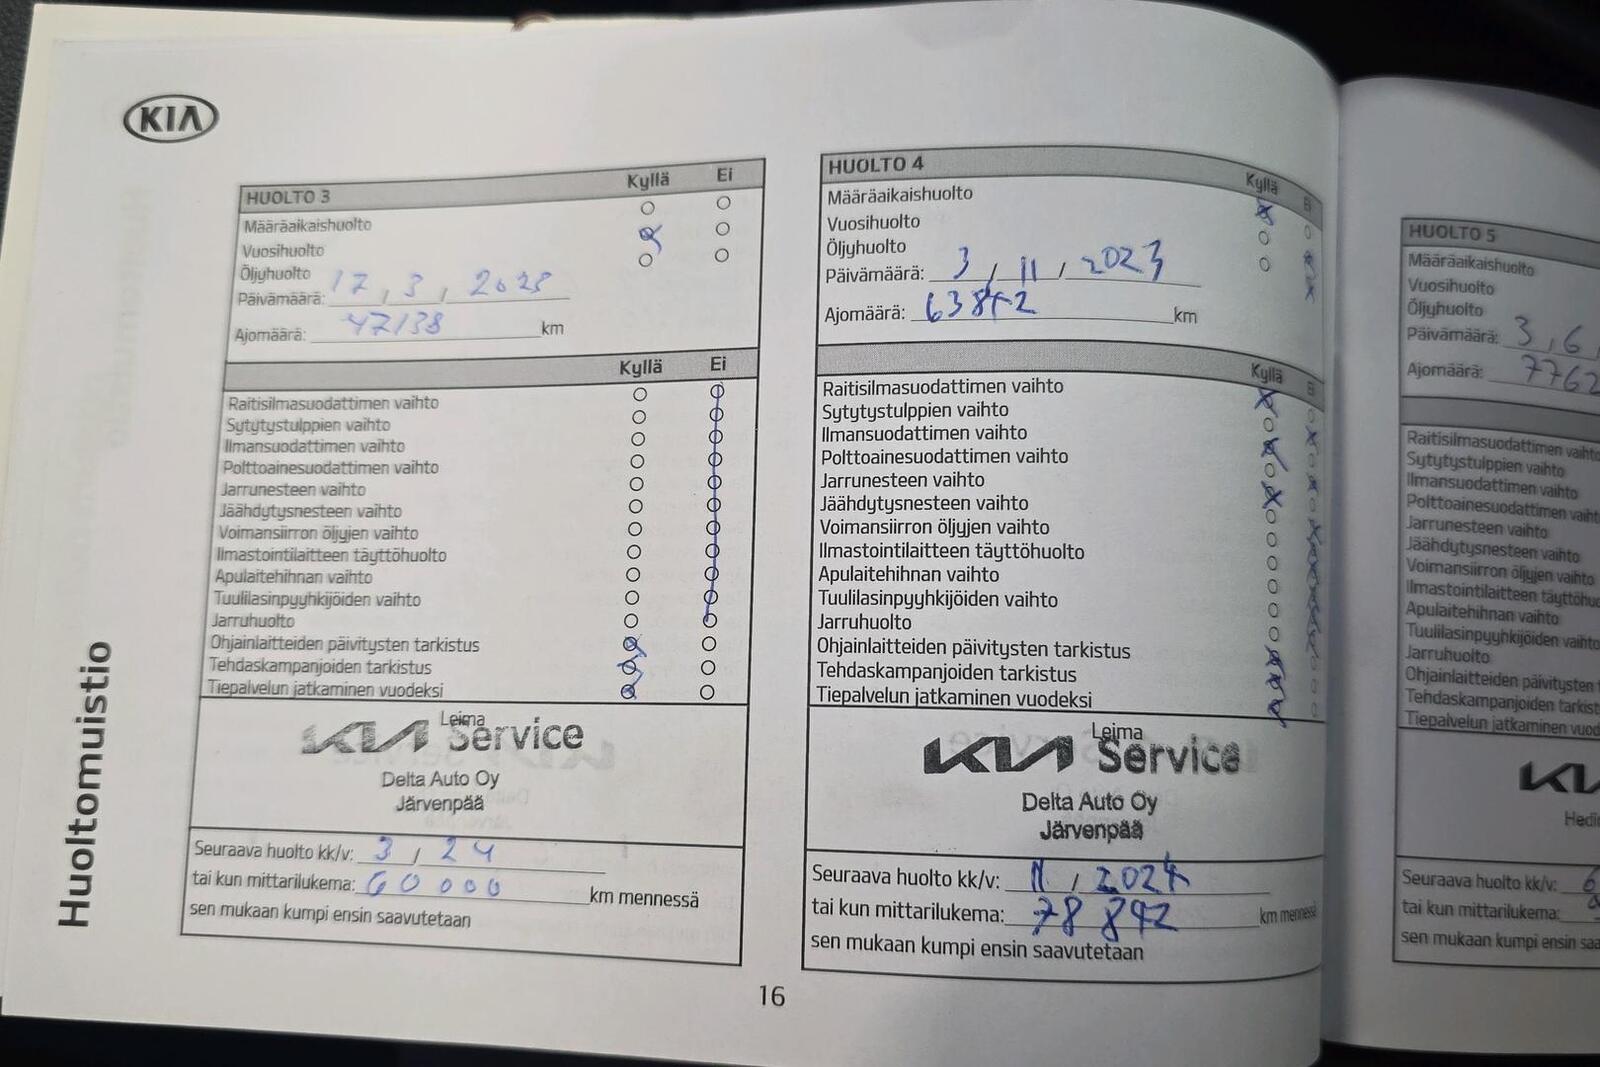 KIA
Huoltomuistio
HUOLTO 3 Kyllä Ei
Määräaikaishuolto
Vuosihuolto
Öljyhuolto
Päivämäärä: 17 , 3 , 2023
Ajomäärä: 47138 km
Kyllä Ei
Raitisilmasuodattimen vaihto
Sytytystulppien vaihto
Ilmansuodattimen vaihto
Polttoainesuodattimen vaihto
Jarrunesteen vaihto
Jäähdytysnesteen vaihto
Voimansiirron öljyjen vaihto
Ilmastointilaitteen täyttöhuolto
Apulaitehihnan vaihto
Tuulilasinpyyhkijöiden vaihto
Jarruhuolto
Ohjainlaitteiden päivitysten tarkistus
Tehdaskampanjoiden tarkistus
Tiepalvelun jatkaminen vuodeksi
Leima
KIA Service
Delta Auto Oy
Järvenpää
Seuraava huolto kk/v: 3 / 24
tai kun mittarilukema: 60000 km mennessä
sen mukaan kumpi ensin saavutetaan
HUOLTO 4 Kyllä Ei
Määräaikaishuolto
Vuosihuolto
Öljyhuolto
Päivämäärä: 3 / 11 / 2023
Ajomäärä: 63842 km
Kyllä Ei
Raitisilmasuodattimen vaihto
Sytytystulppien vaihto
Ilmansuodattimen vaihto
Polttoainesuodattimen vaihto
Jarrunesteen vaihto
Jäähdytysnesteen vaihto
Voimansiirron öljyjen vaihto
Ilmastointilaitteen täyttöhuolto
Apulaitehihnan vaihto
Tuulilasinpyyhkijöiden vaihto
Jarruhuolto
Ohjainlaitteiden päivitysten tarkistus
Tehdaskampanjoiden tarkistus
Tiepalvelun jatkaminen vuodeksi
Leima
KIA Service
Delta Auto Oy
Järvenpää
Seuraava huolto kk/v: 11 / 2024
tai kun mittarilukema: 78842 km mennessä
sen mukaan kumpi ensin saavutetaan
16
HUOLTO 5
Määräaikaishuolto
Vuosihuolto
Öljyhuolto
Päivämäärä: 3 , 6 ,
Ajomäärä: 7762
Raitisilmasuodattimen vaihto
Sytytystulppien vaihto
Ilmansuodattimen vaihto
Polttoainesuodattimen vaiht
Jarrunesteen vaihto
Jäähdytysnesteen vaihto
Voimansiirron öljyjen vaihto
Ilmastointilaitteen täyttöhuo
Apulaitehihnan vaihto
Tuulilasinpyyhkijöiden vaihto
Jarruhuolto
Ohjainlaitteiden päivitysten t
Tehdaskampanjoiden tarkist
Tiepalvelun jatkaminen vuod
KIA
Hedi
Seuraava huolto kk/v: 6
tai kun mittarilukema: 9
sen mukaan kumpi ensin saa